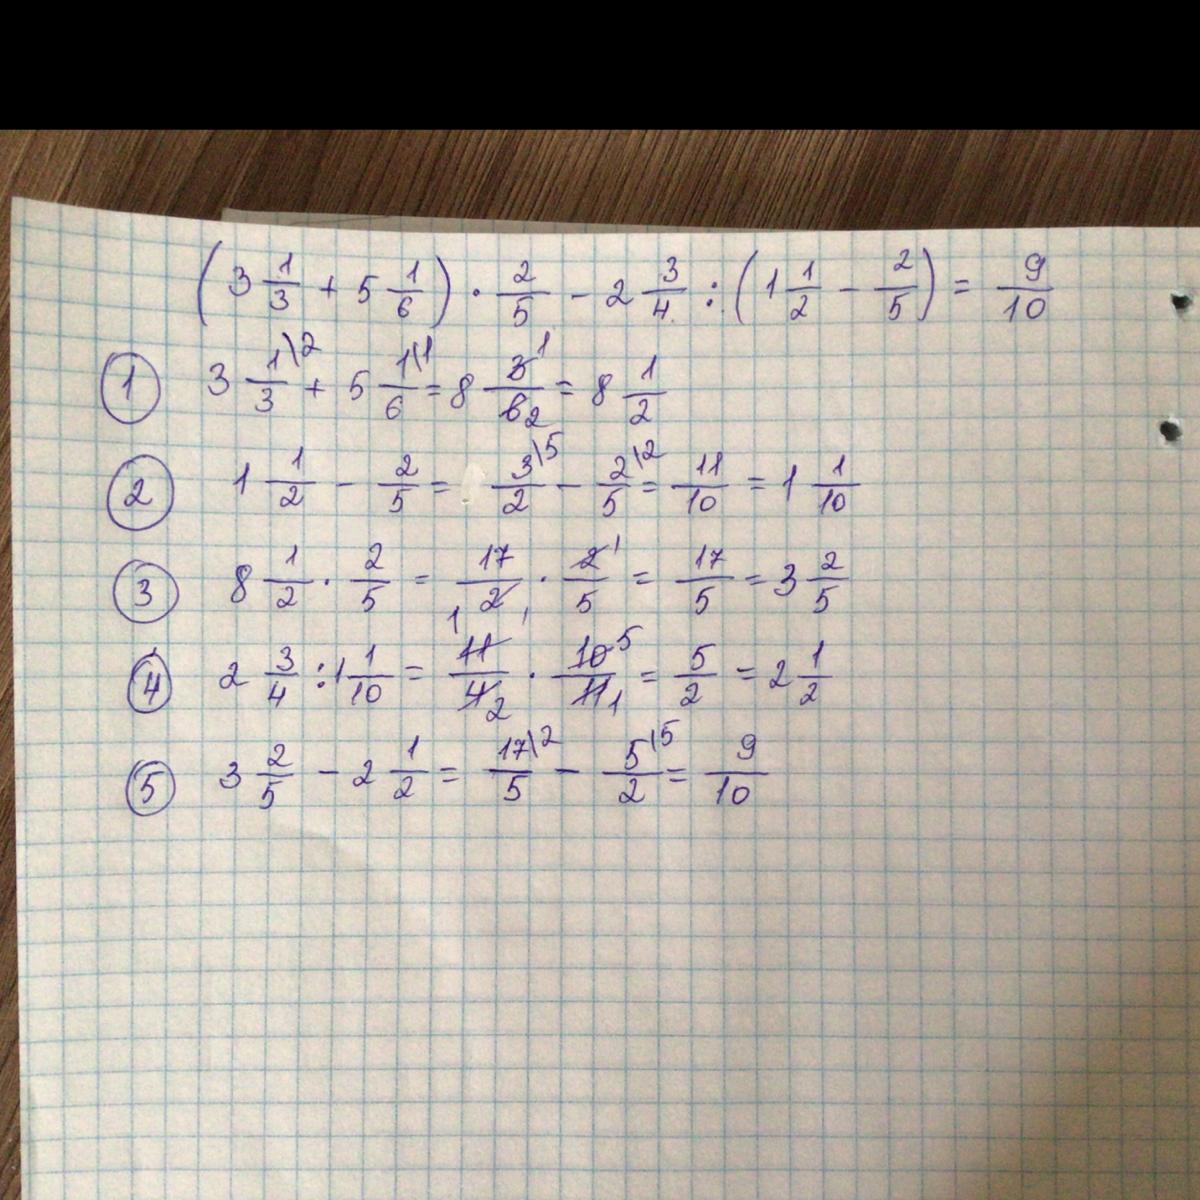 (3 1/3 + 5 1/6) · 2/5 - 2 3/4 : (1 1/2 - 2/5) = 9/10
① 3 1\2/3 + 5 1\1/6 = 8 3 1/6 2 = 8 1/2
② 1 1/2 - 2/5 = 3\5/2 - 2\2/5 = 11/10 = 1 1/10
③ 8 1/2 · 2/5 = 17/2 1 · 2 1/5 = 17/5 = 3 2/5
④ 2 3/4 : 1 1/10 = 11 1/4 2 · 10 5/11 1 = 5/2 = 2 1/2
⑤ 3 2/5 - 2 1/2 = 17\2/5 - 5\5/2 = 9/10